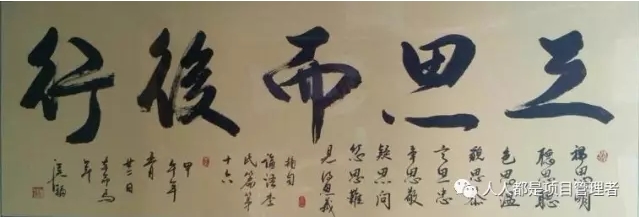 三思而後行
視思明
聽思聰
色思溫
貌思恭
言思忠
事思敬
疑思問
忿思難
見得思義
摘句
論語季
氏篇第
十六
甲
午年
廿二日
本命馬
年
人人都是项目管理者